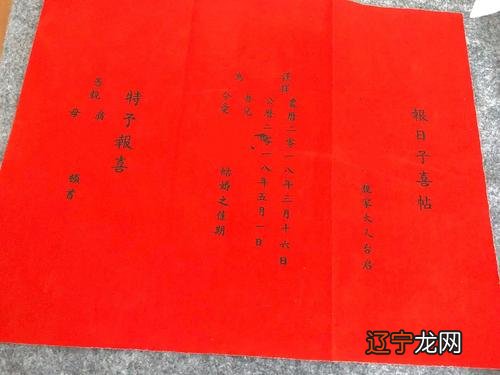 報日子喜帖
親家大人台启
谨择 農曆二零一八年三月十六日
公曆二零一八年五月一日
為 令愛 结婚之佳期
特予報喜
翁
母 頓首
辽宁龙网